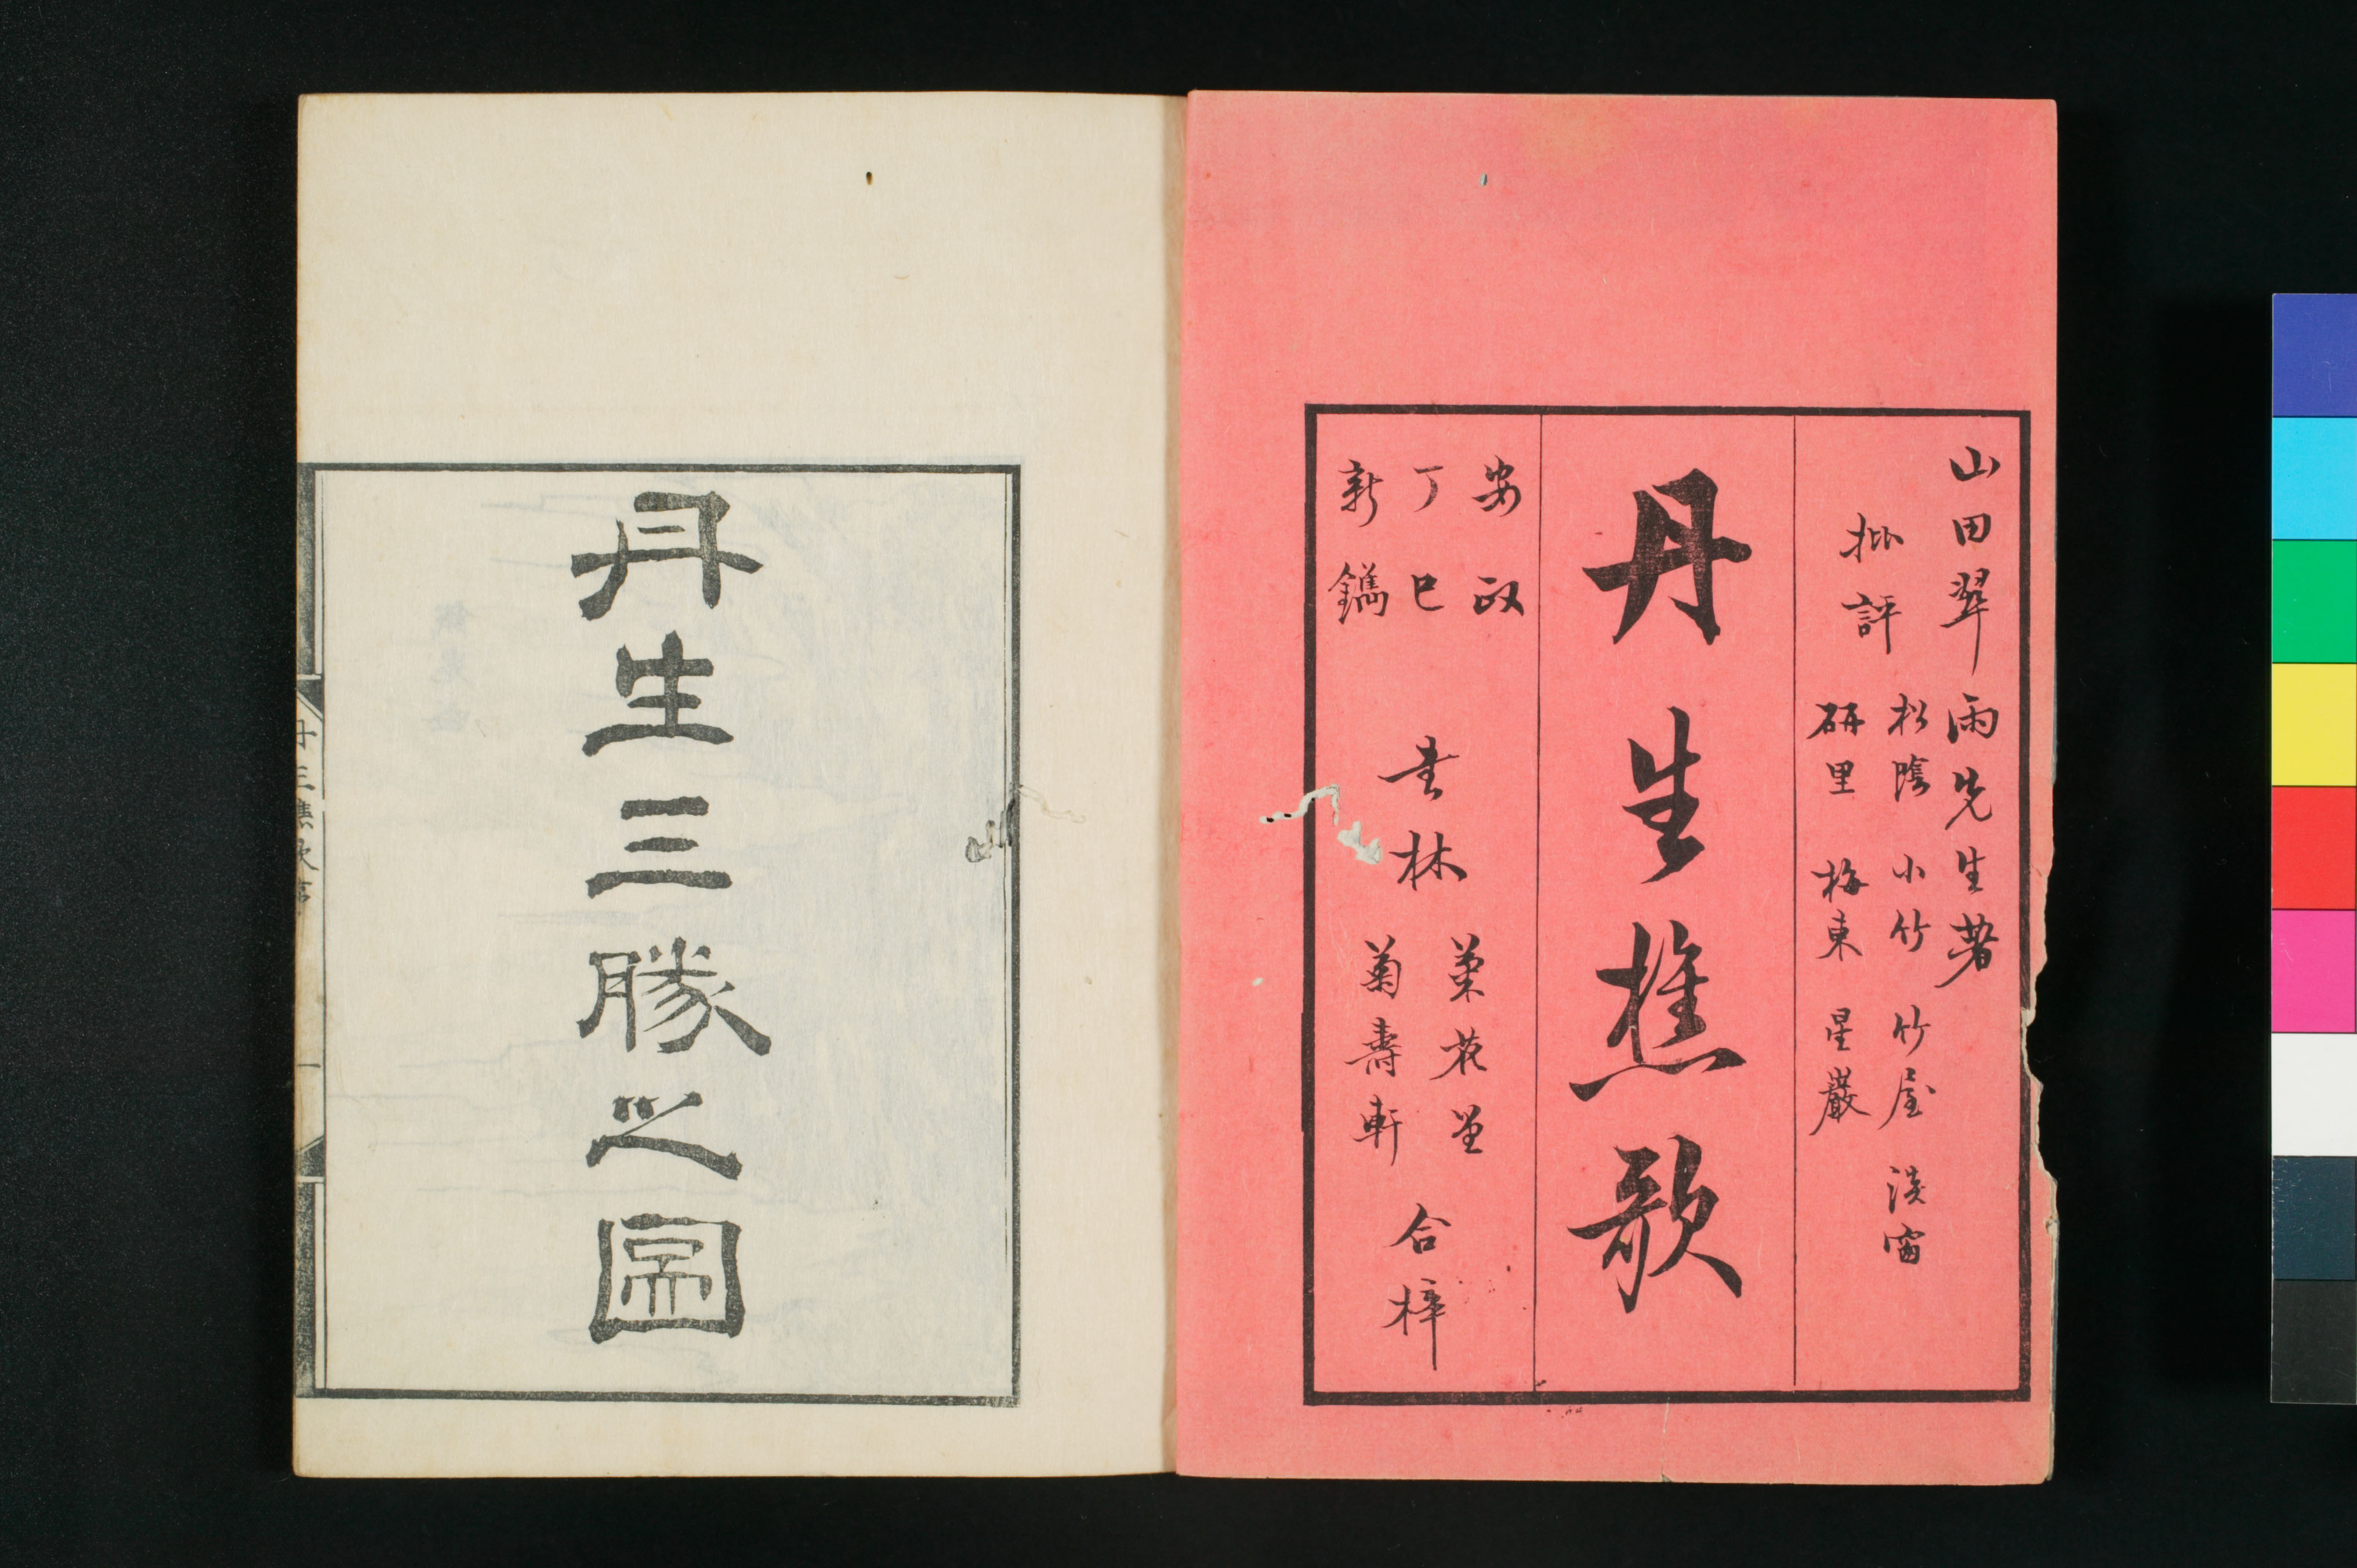 山田翠雨先生著
批評
松陰 小竹 竹屋 淡窗
研里 梅東 星巖
丹生樵歌
安政
丁巳
新鐫
書林
菊壽軒
合梓
丹生三勝之圖